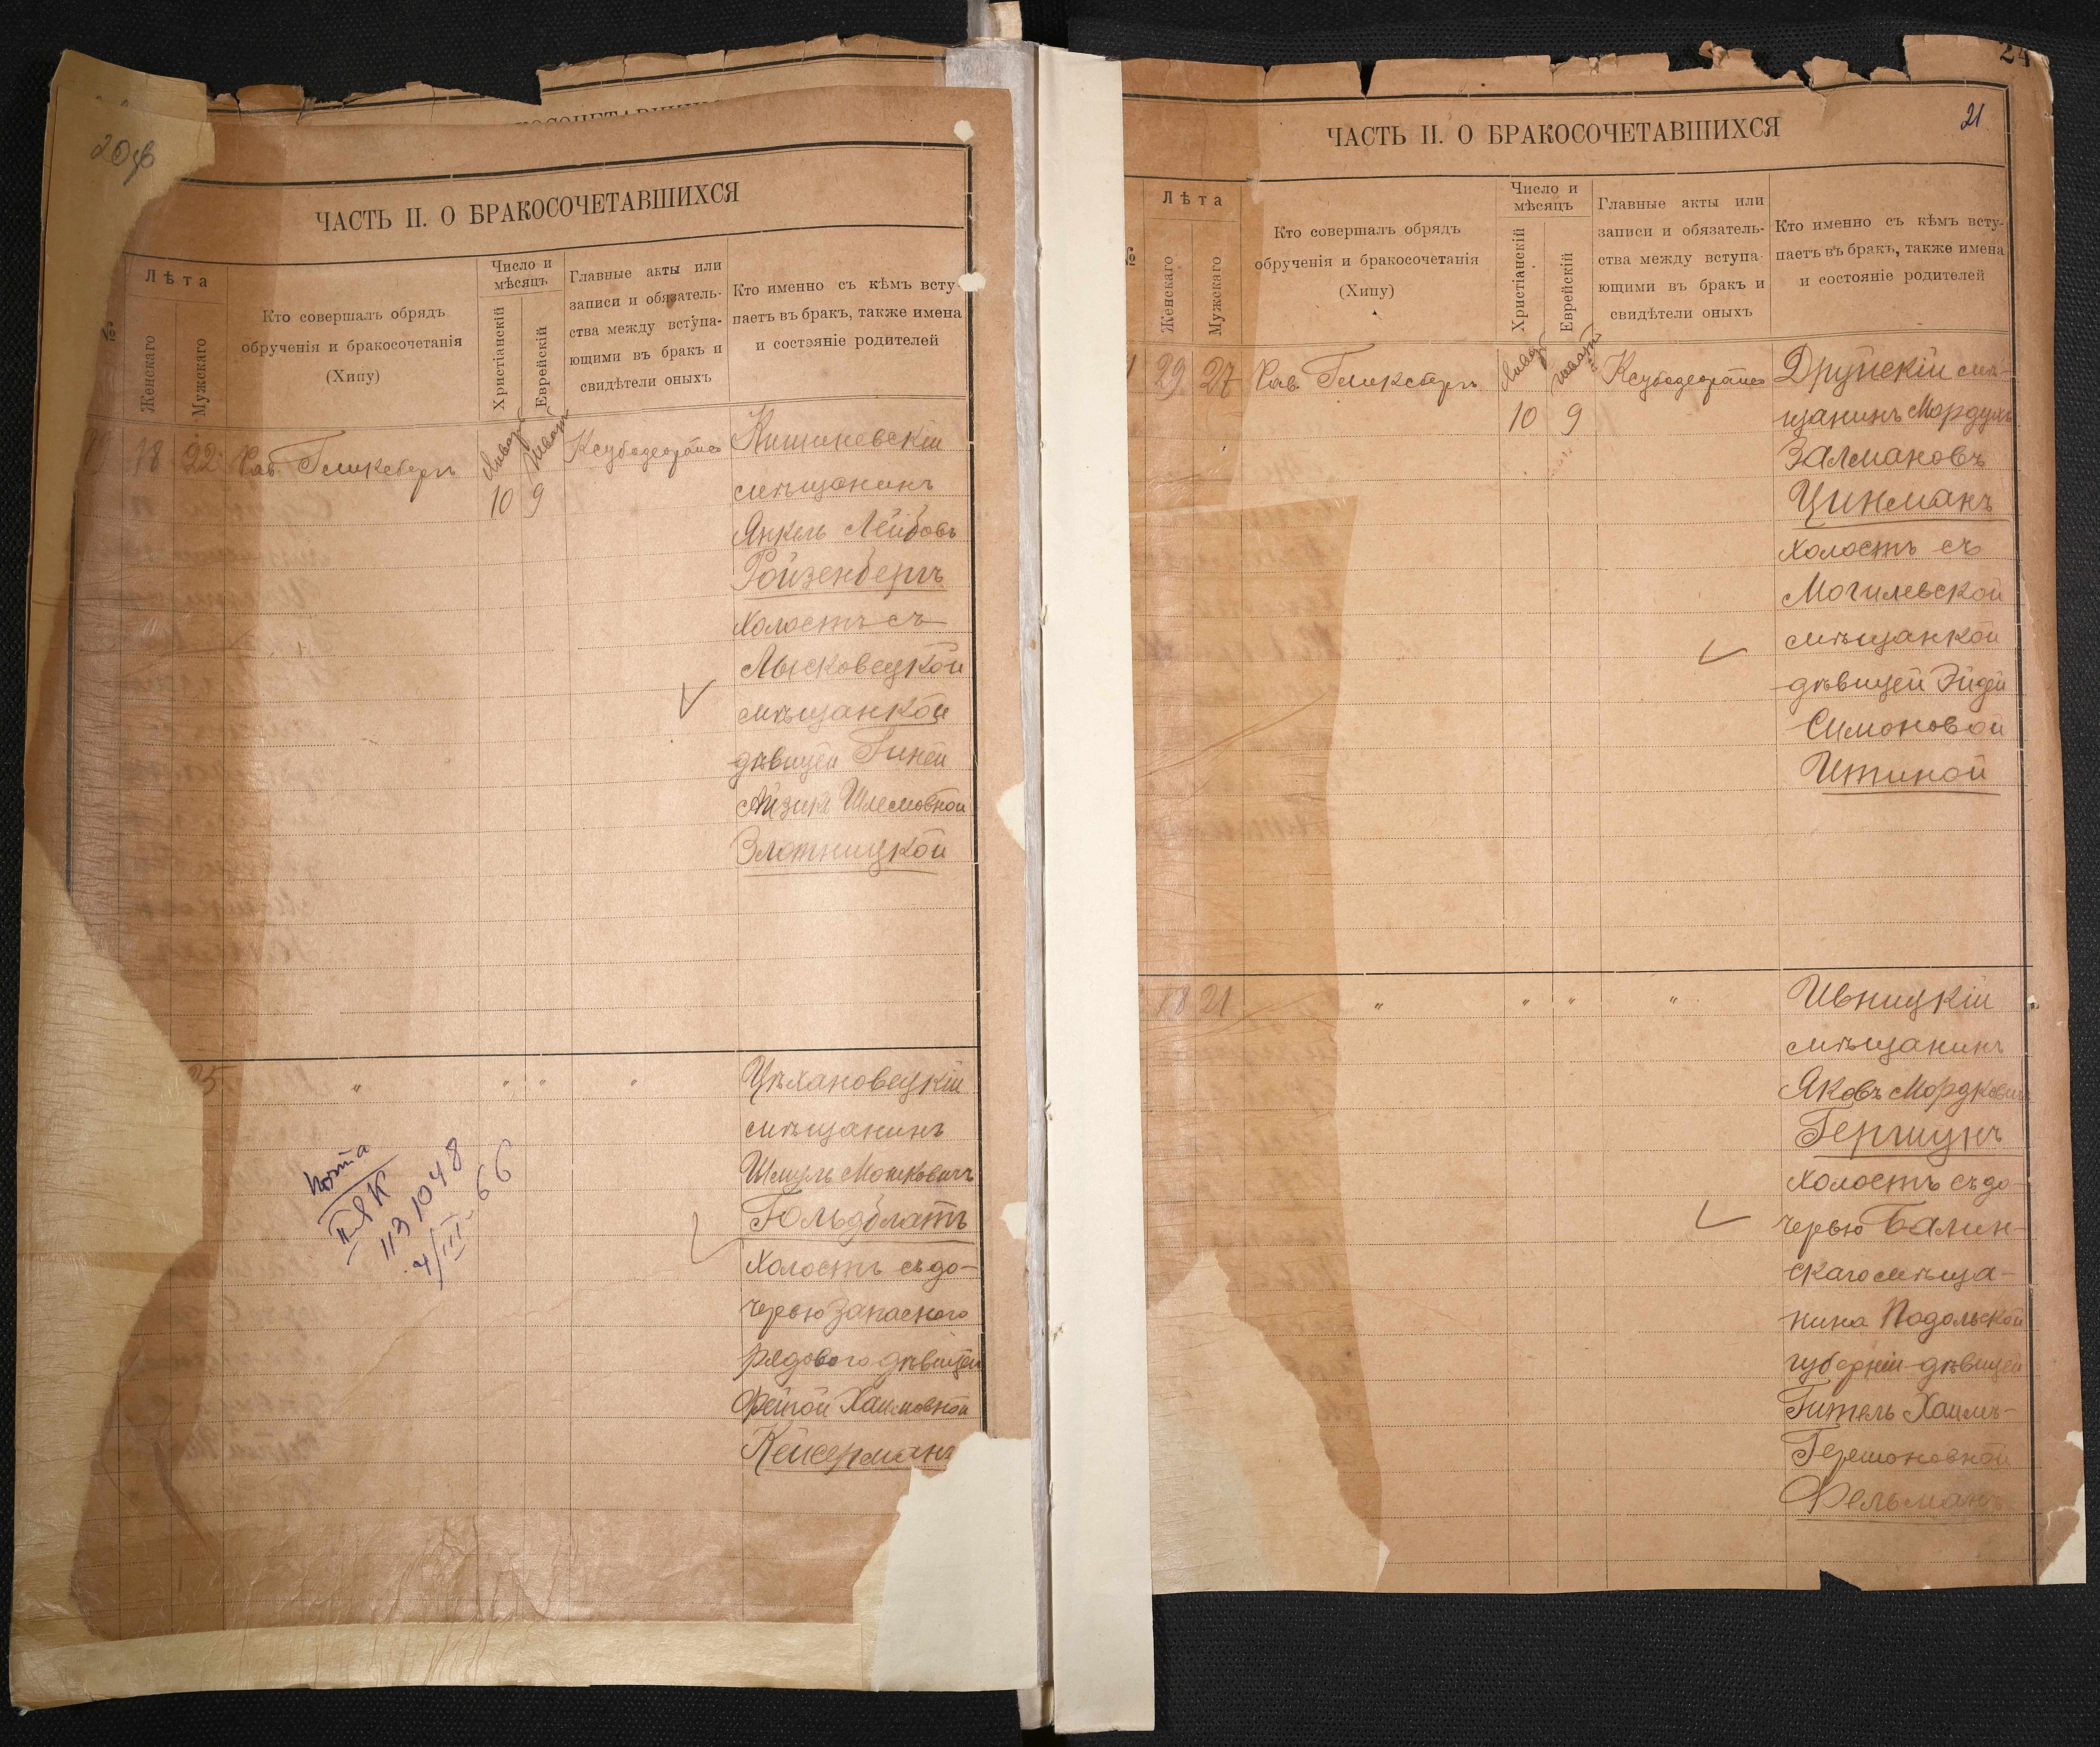 20об
ЧАСТЬ II. О БРАКОСОЧЕТАВШИХСЯ
№
Лѣта
Женскаго
Мужскаго
Кто совершалъ обрядъ
обрученія и бракосочетанія
(Хипу)
Число и
мѣсяцъ
Христіанскій
Еврейскій
Главные акты или
записи и обязатель-
ства между вступа-
ющими въ бракъ и
свидѣтели оныхъ
Кто именно съ кѣмъ всту-
паетъ въ бракъ, также имена
и состояніе родителей
18 22 Рав. Гликсбергъ
10 9
Кишиневскій
мѣщанинъ
Янкель Лейбовъ
Ройзенбергъ
холостъ съ
Лысковецкой
мѣщанкой
дѣвицей Гиней
Айзикъ Шлемовной
Злотницкой
" " " "
Цѣхановецкій
мѣщанинъ
Шмуль Мошковичъ
Гольдблатъ
холостъ съ до-
черью запасного
рядового дѣвицей
Фейгой Хаимовной
Кейсерманъ
113 1048
4/III-66
24
21
ЧАСТЬ II. О БРАКОСОЧЕТАВШИХСЯ
№
Лѣта
Женскаго
Мужскаго
Кто совершалъ обрядъ
обрученія и бракосочетанія
(Хипу)
Число и
мѣсяцъ
Христіанскій
Еврейскій
Главные акты или
записи и обязатель-
ства между вступа-
ющими въ бракъ и
свидѣтели оныхъ
Кто именно съ кѣмъ всту-
паетъ въ бракъ, также имена
и состояніе родителей
29 27 Рав. Гликсбергъ
10 9
Друйскій мѣ-
щанинъ Мордухъ
Залмановъ
Цинманъ
холостъ съ
Могилевской
мѣщанкой
дѣвицей Эйдей
Симоновой
Итиной
18 21 " " " "
Ивницкій
мѣщанинъ
Яковъ Мордковичъ
Гершунъ
холостъ съ до-
черью Балин-
скаго мѣща-
нина Подольской
губерніи дѣвицей
Гитель Хаимъ-
Гершоновной
Фельманъ